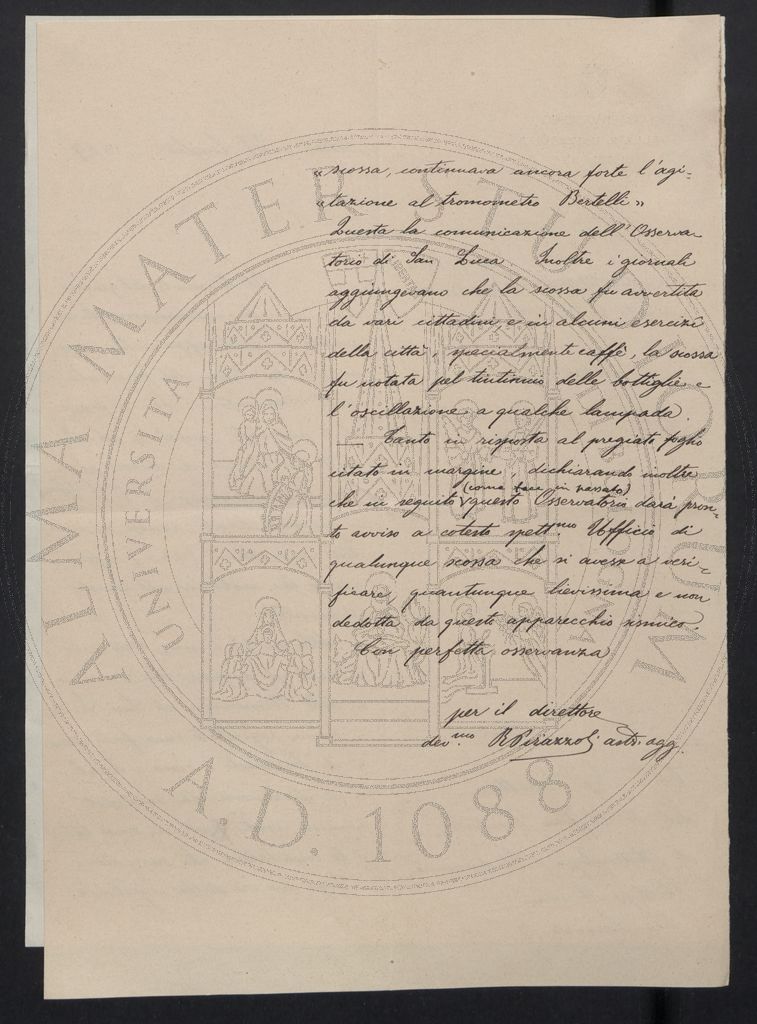 « scossa, continuava ancora forte l'agi-
« tazione al tromometro Bertelli »
Questa la comunicazione dell'Osserva-
torio di San Luca. Inoltre i giornali
aggiungevano che la scossa fu avvertita
da vari cittadini, e in alcuni esercizi
della città, specialmente caffè, la scossa
fu notata pel tintinnio delle bottiglie e
l'oscillazione a qualche lampada.
— Tanto in risposta al pregiato foglio
citato in margine, dichiarando inoltre
(come fece in passato)
che in seguito questo Osservatorio darà pron-
to avviso a cotesto spett.mo Ufficio di
qualunque scossa che si avesse a veri-
ficare, quantunque lievissima e non
dedotta da questo apparecchio sismico.
Con perfetta osservanza
per il direttore
dev.mo R Pirazzoli astr. agg.
ALMA MATER STUDIORUM
UNIVERSITA
A.D. 1088